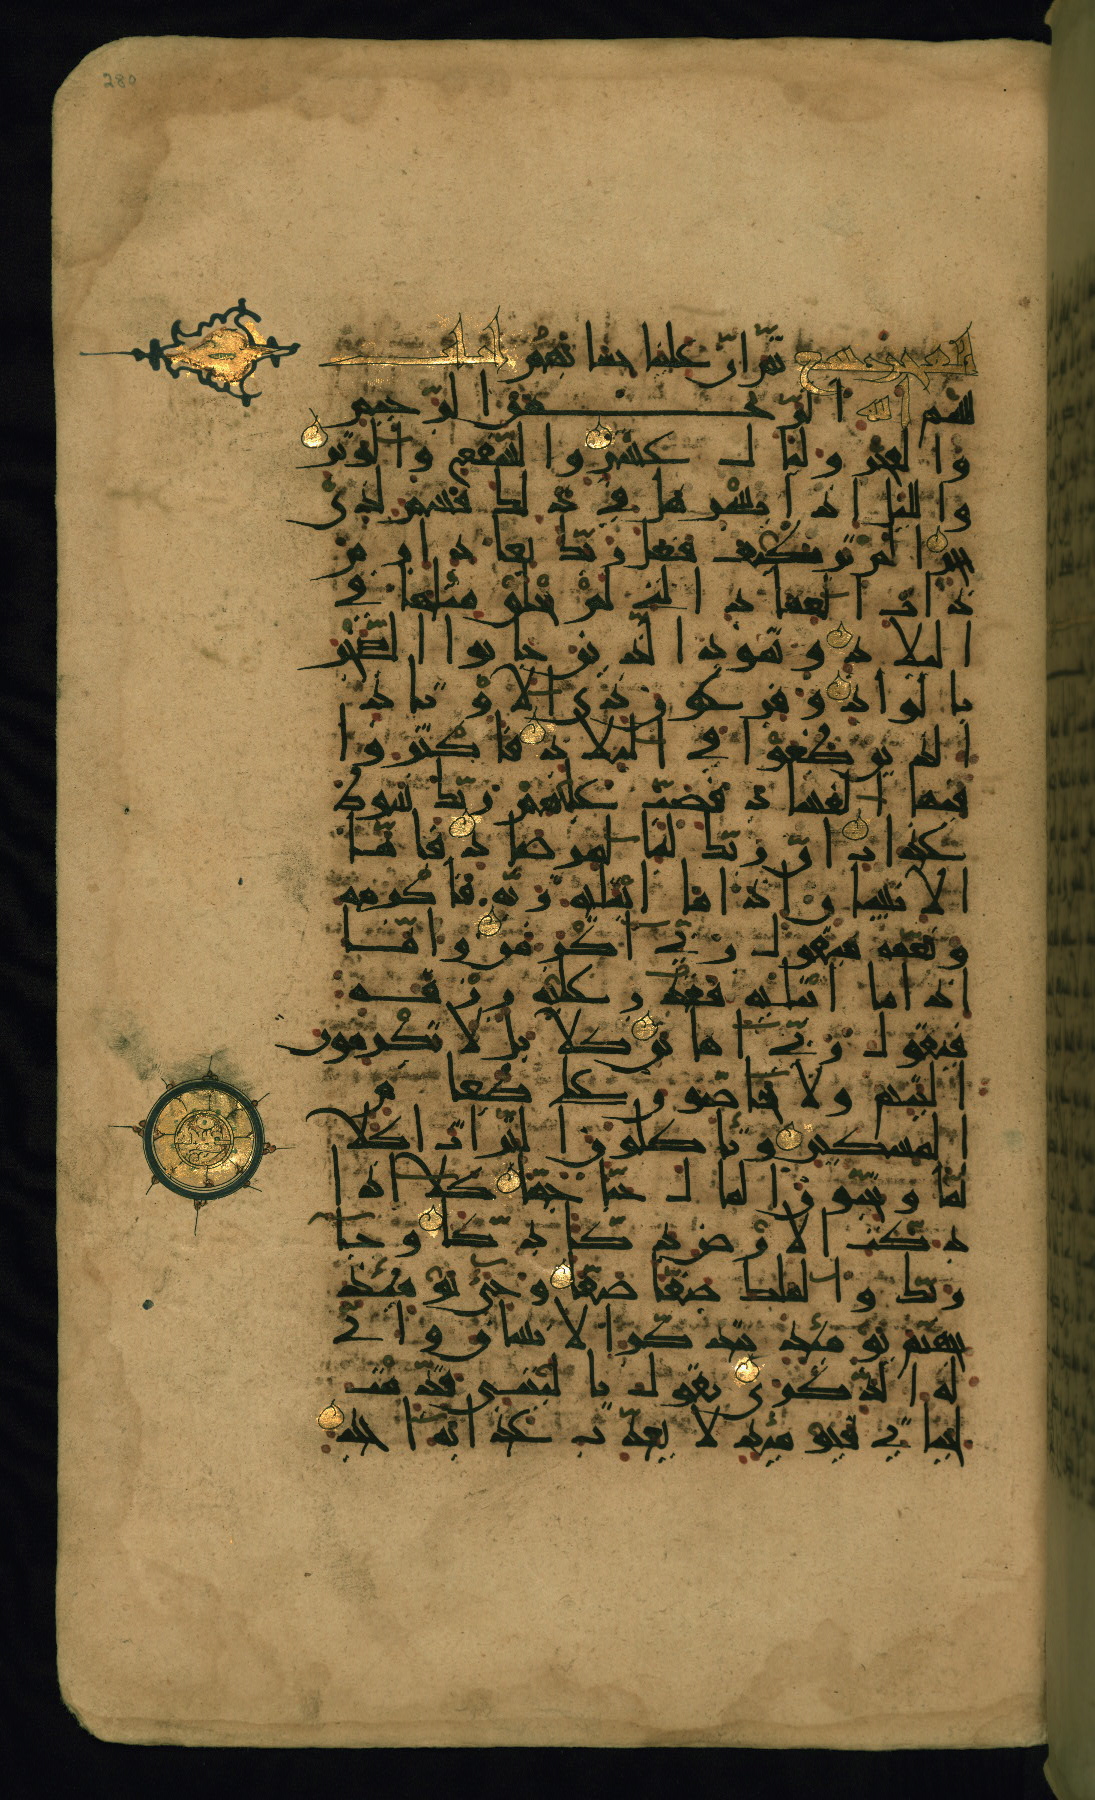 280
ثم ان علينا حسابهم
بسم الله الرحمن الرحيم
والفجر وليال عشر والشفع والوتر
والليل اذا يسر هل في ذلك قسم لذي
حجر الم تر كيف فعل ربك بعاد ارم
ذات العماد التي لم يخلق مثلها في
البلاد وثمود الذين جابوا الصخر
بالواد وفرعون ذي الاوتاد
الذين طغوا في البلاد فاكثروا
فيها الفساد فصب عليهم ربك سوط
عذاب ان ربك لبالمرصاد فاما
الانسان اذا ما ابتليه ربه فاكرمه
ونعمه فيقول ربي اكرمن واما
اذا ما ابتليه فقدر عليه رزقه
فيقول ربي اهانن كلا بل لا تكرمون
اليتيم ولا تحاضون على طعام
المسكين وتاكلون التراث اكلا
لما وتحبون المال حبا جما كلا اذا
دكت الارض دكا دكا وجا
ربك والملك صفا صفا وجيء يومئذ
بجهنم يومئذ يتذكر الانسان واني
له الذكرى يقول يا ليتني قدمت
لحياتي فيومئذ لا يعذب عذابه احد